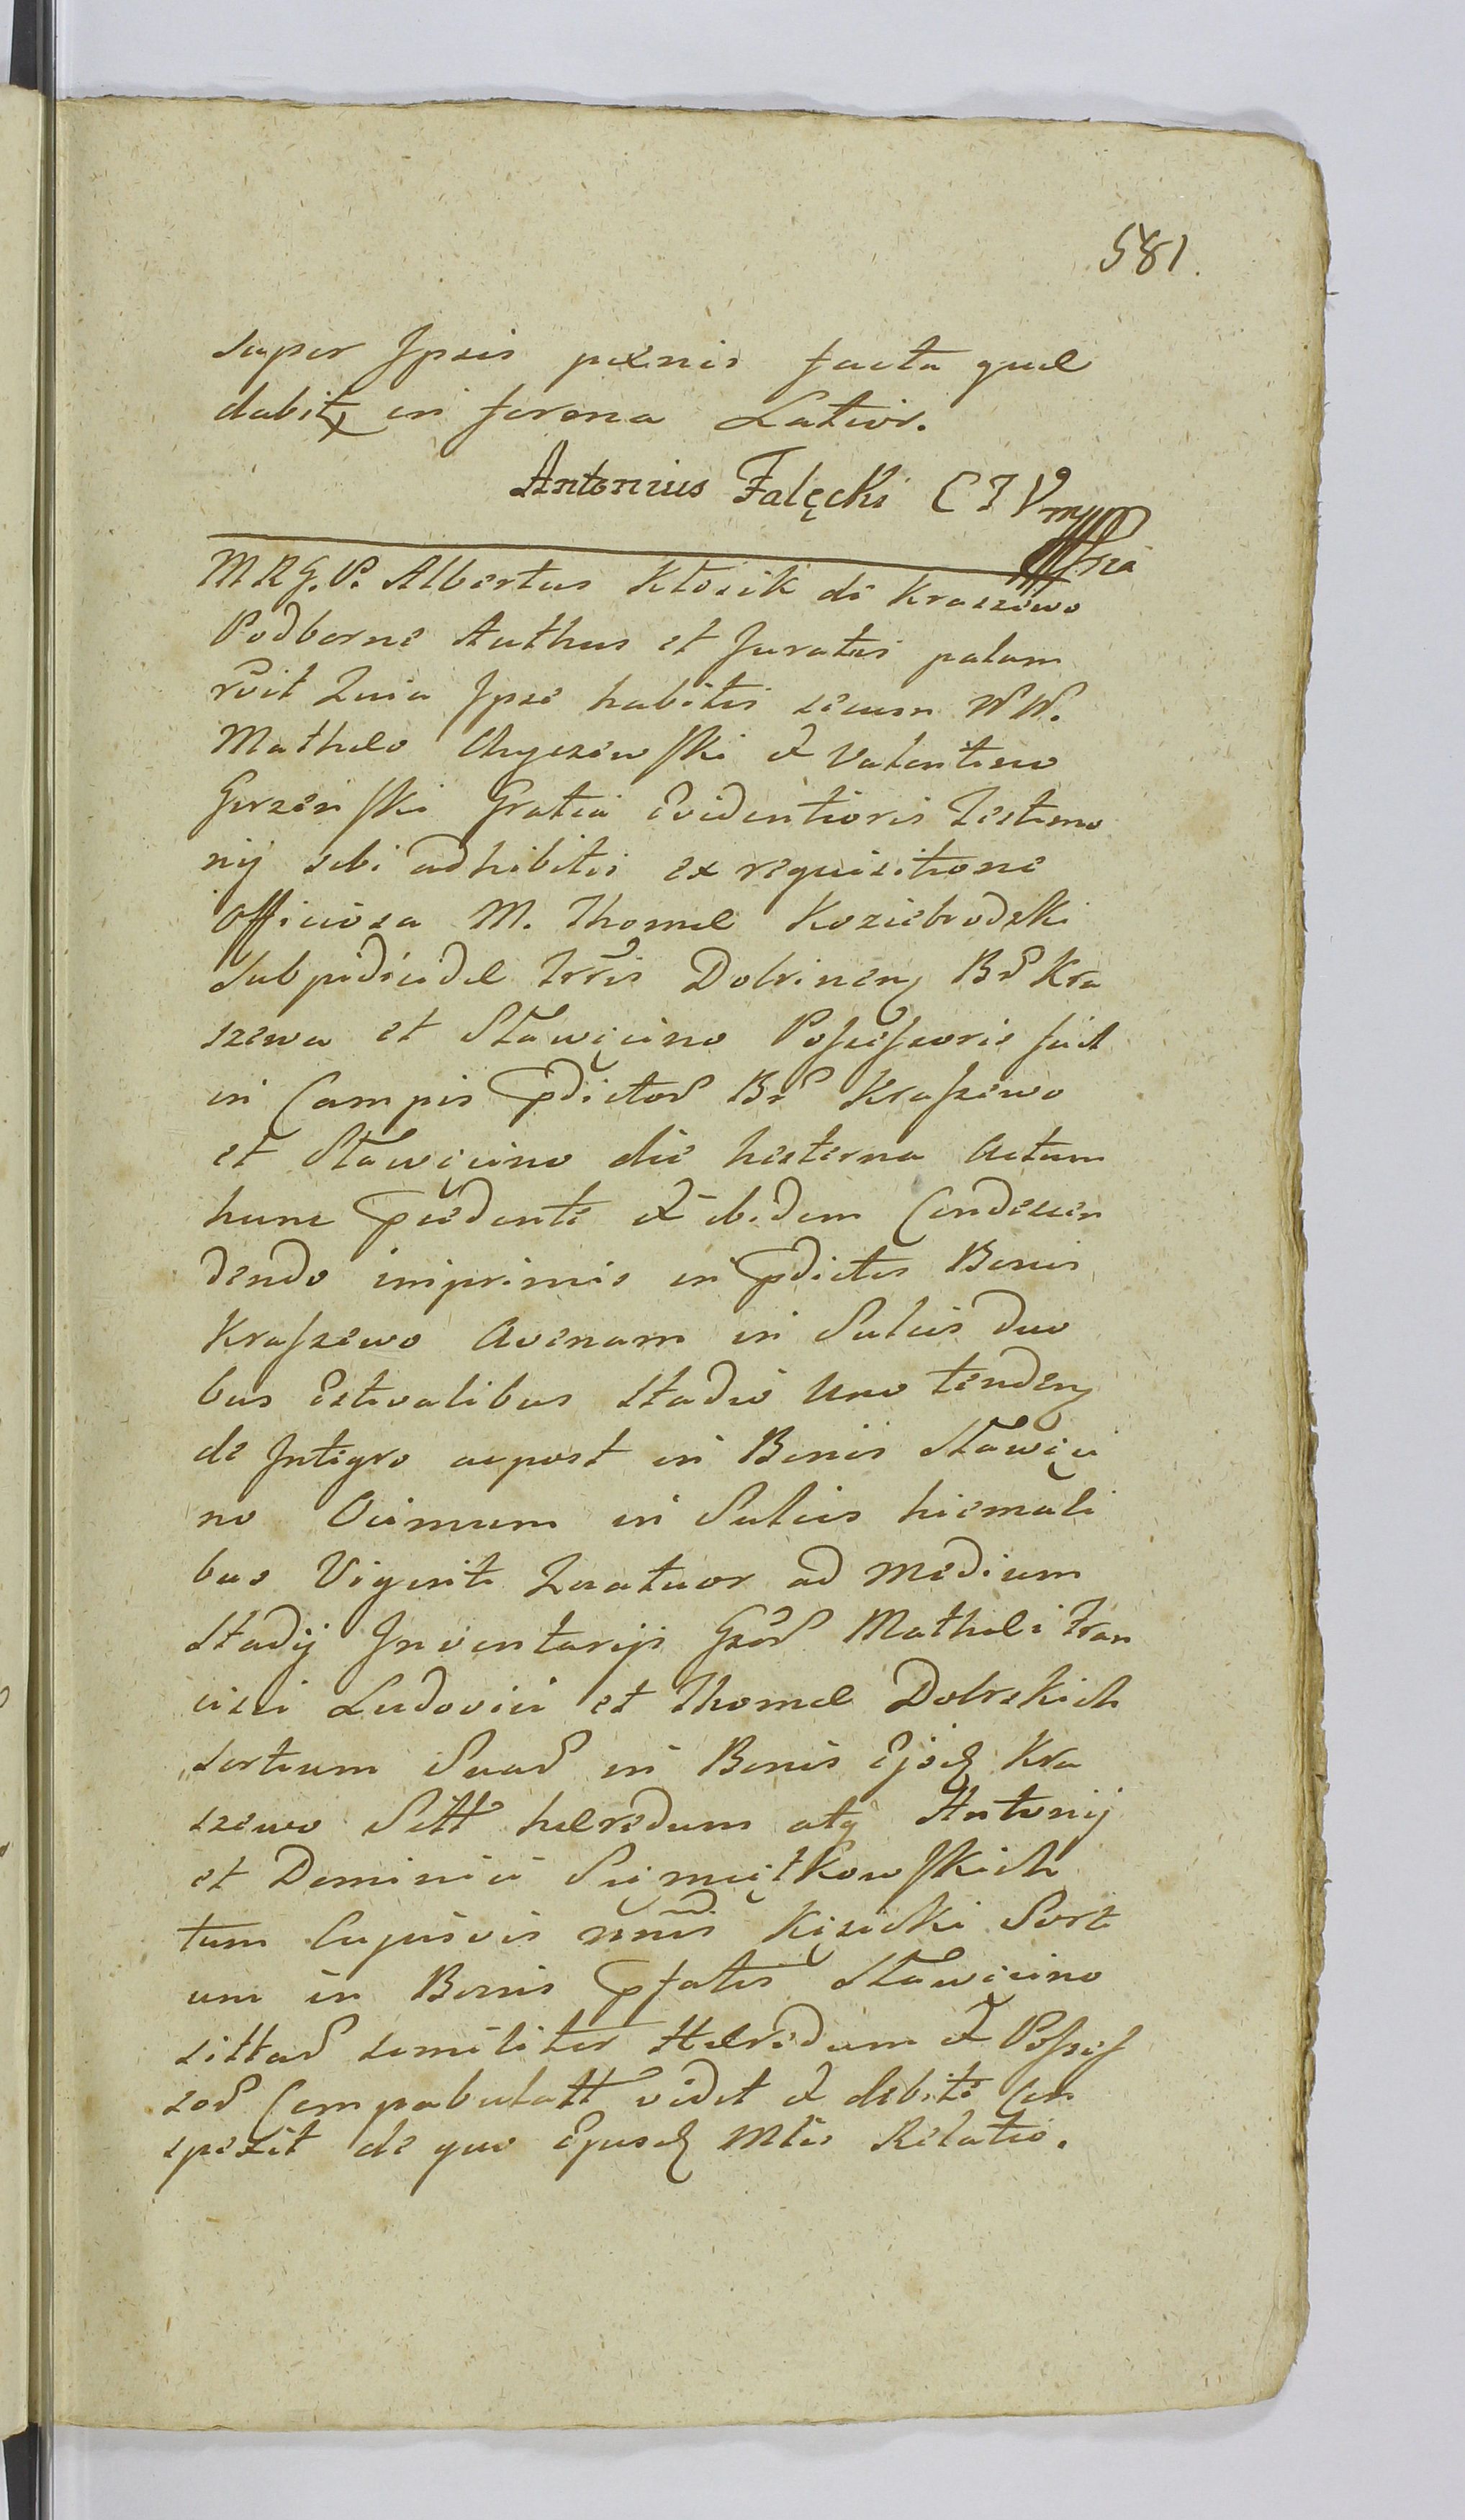 581.
super Ipsis pxnis facta quæ
dabitz in forma Latior.
Antonius Falęcki CTV mpp
MRG. P. Albertus Kłosik de Kraszewo
Podborne Authus et Juratus palam
rvit Quia Ipse habitis secum NN.
Mathæo Chyczewski et Valentino
Gorzenski Gratia Evidentioris Testimo
nij sibi adhibitis ex requisitione
Officiosa M. Thomæ Koziebrodzki
Subpidicidæ Trris Dobrinen Br Kra
szewa et Sławęcino Possessoris fuit
in Campis pdictor Br Kraszewo
et Sławęcino die hesterna Actum
hunc pcedente et ibidem Condescen
dendo imprimis in pdictis Bonis
Kraszewo Avenam in Sulcis duo
bus Estivalibus Stadio Uno tenden
de Integro ac post in Bonis Sławęci
no Ocimum in Sulcis hiemali
bus Viginti Quatuor ad medium
Stadij Inventarijs Gsor Mathæi Fran
cisci Ludovici et Thomæ Dobrskich
Sortium Suar in Bonis Ejsd Kra
szewo Sitt hæredum atq Antonij
et Dominici Sujmiętkowskich
tum Cujusvis nnis Kęsicki Sort
um in Bonis pfatis Sławęcino
sittar similiter Hæredum et Posses
sor Compabulatt vidit et debite Con
spexit de quo Ejusd Mlis Relatio.